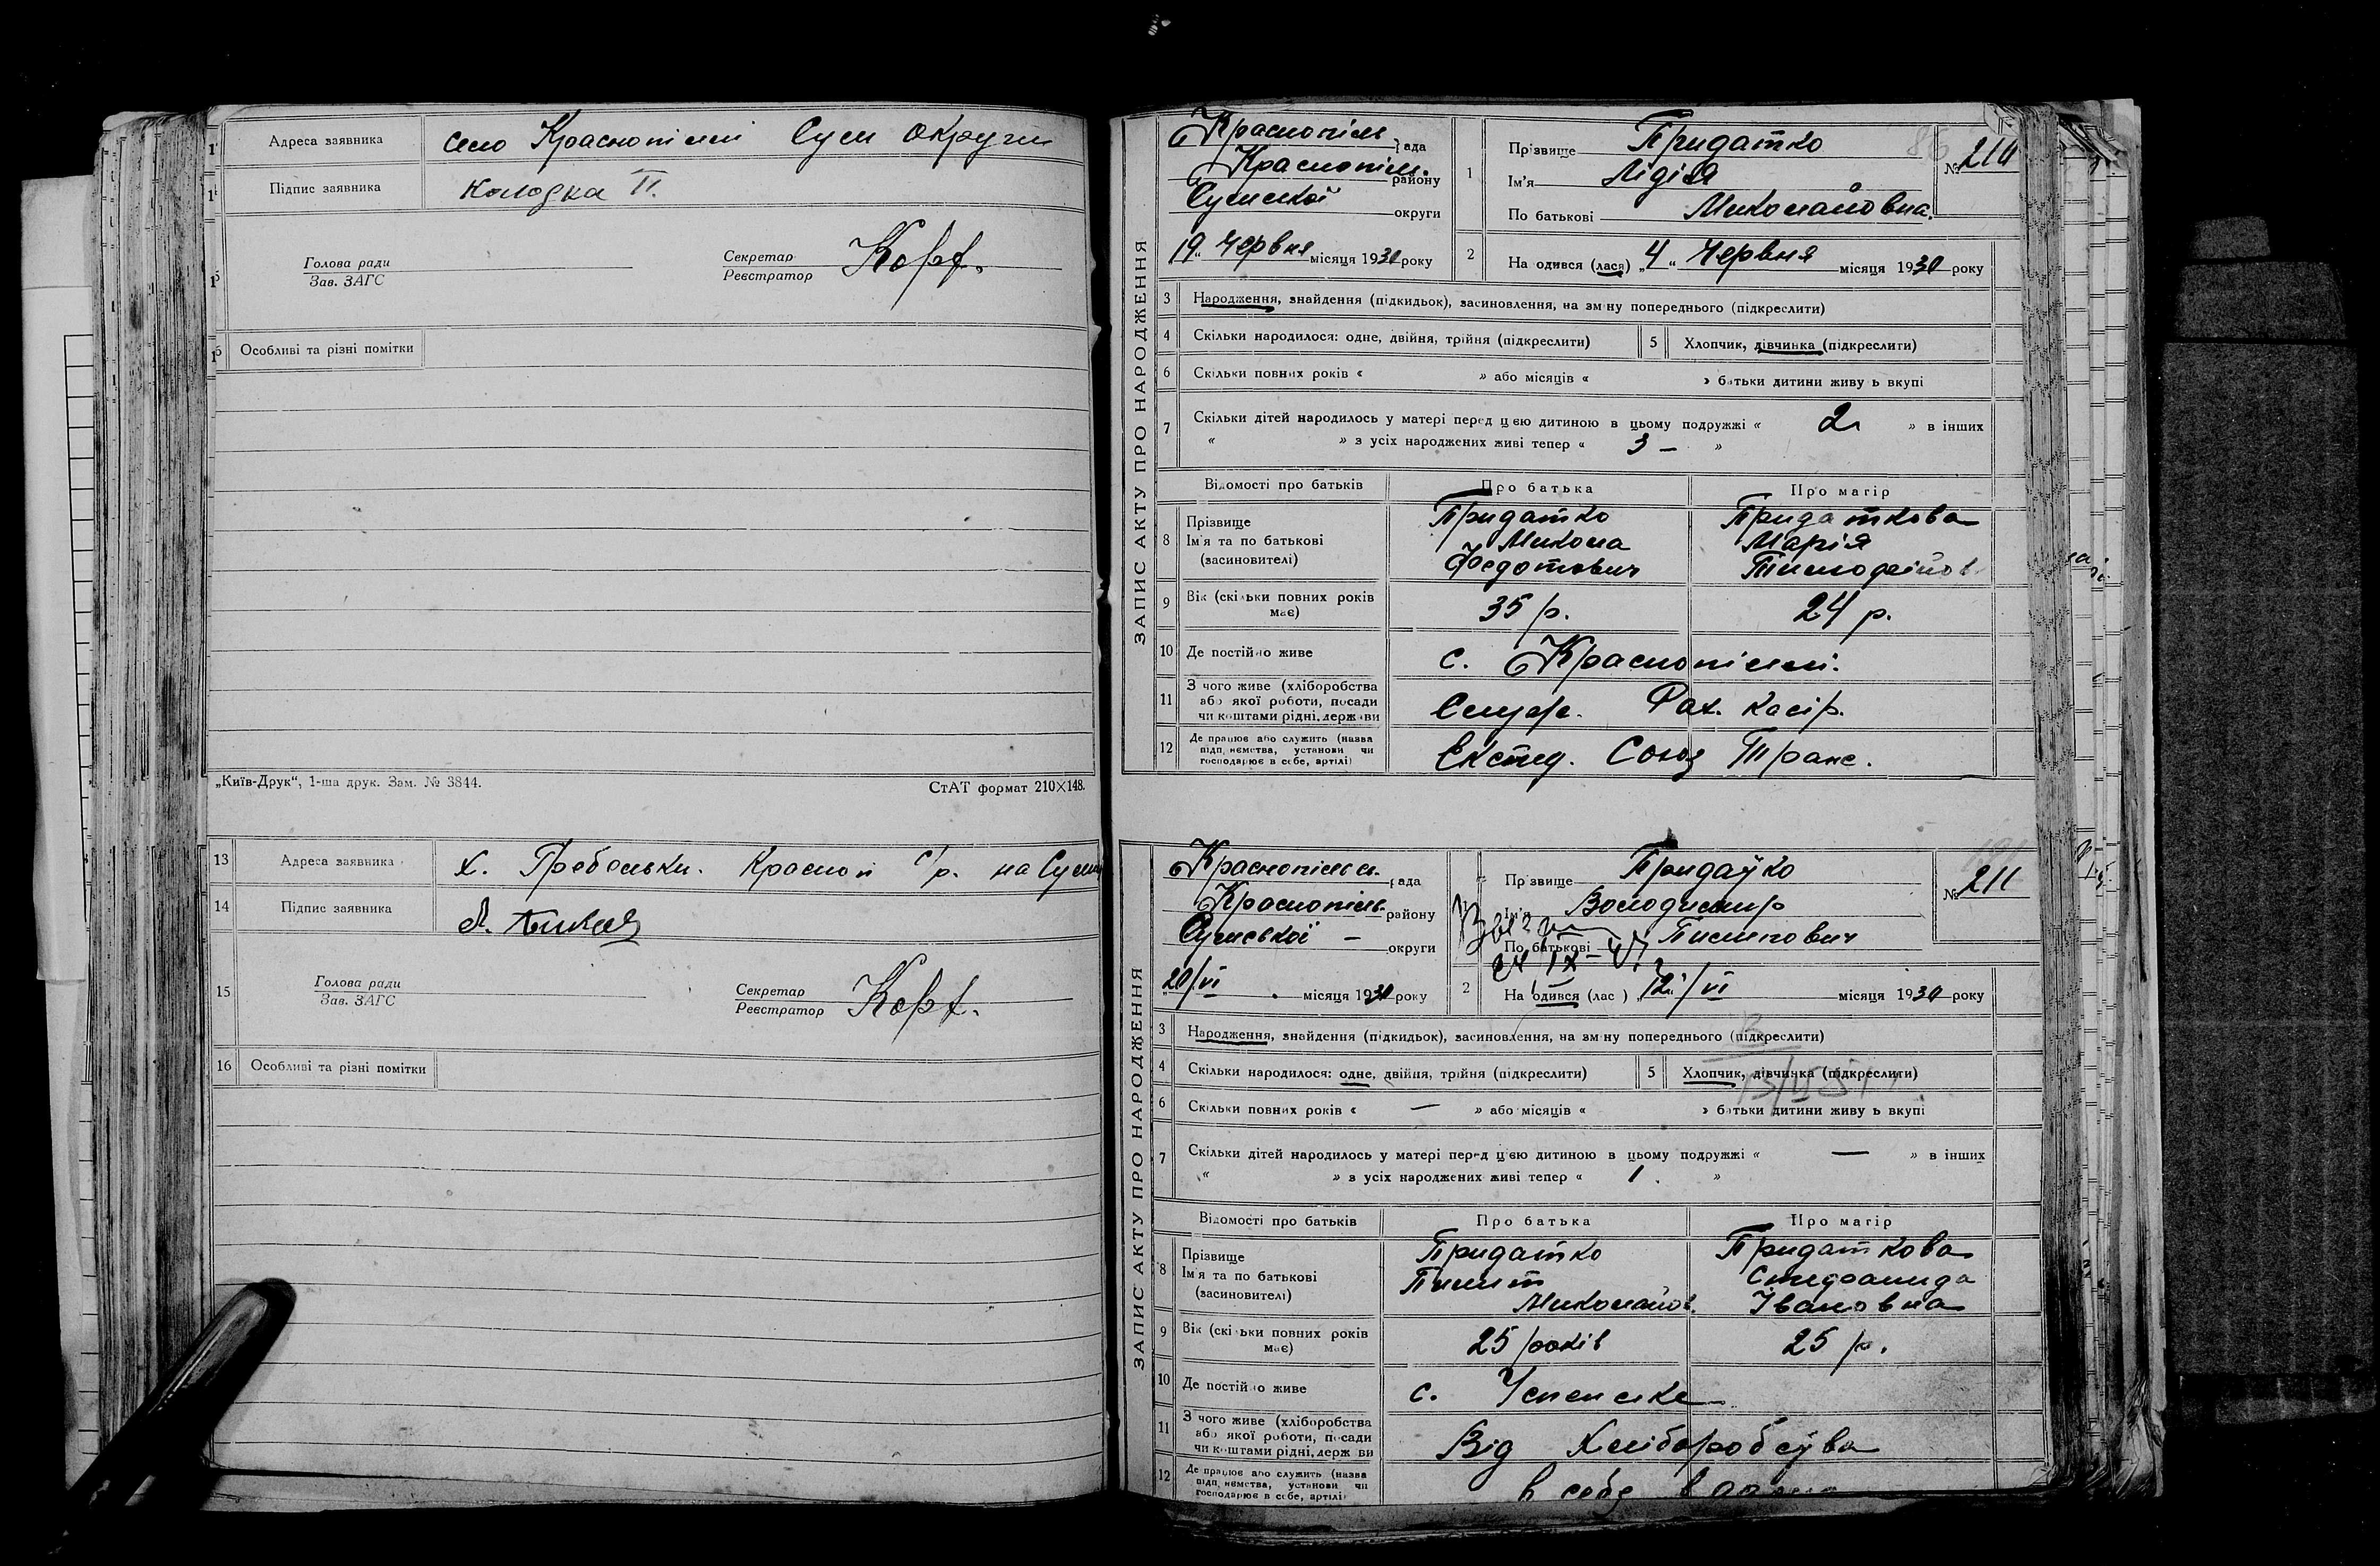 Адреса заявника село Краснопіллі Сум округи
Підпис заявника Колодка П.
Голова ради
Зав. ЗАГС
Секретар
Реєстратор
Особливі та різні помітки
„Київ-Друк“, 1-ша друк. Зам. № 3844. СтАТ формат 210×148.
13 Адреса заявника х. Гребельки. Краспоп с/р. на Сумщ
14 Підпис заявника
15 Голова ради
Зав. ЗАГС
Секретар
Реєстратор
16 Особливі та різні помітки
ЗАПИС АКТУ ПРО НАРОДЖЕННЯ
Краснопіль. рада
Краснопіль. району
Сумської округи
19 „ Червня місяця 1930 року
1 Прізвище Придатко
Ім'я Лідія
По батькові Миколайовна.
№ 210
2 На одився (лася) „4“ Червня місяця 1930 року
3 Народження, знайдення (підкидьок), засиновлення, на зміну попереднього (підкреслити)
4 Скільки народилося: одне, двійня, трійня (підкреслити) 5 Хлопчик, дівчинка (підкреслити)
6 Скільки повних років « » або місяців « » батьки дитини живу ь вкупі
7 Скільки дітей народилось у матері перед цією дитиною в цьому подружжі « 2 » в інших
« » з усіх народжених живі тепер « 3 – »
Відомості про батьків Про батька Про матір
8 Прізвище Придатко Придаткова
Ім'я та по батькові Микола Марія
(засиновителі) Федотович Тимофеївов
9 Вік (скільки повних років має) 35 р. 24 р.
10 Де постійно живе с. Краснопіллі.
11 З чого живе (хліборобства
або якої роботи, посади
чи коштами рідні, держави Служ. Фах. касір.
12 Де працює або служить (назва
підприємства, установи чи
господарює в себе, артілі) Експед. Союз Транс.
ЗАПИС АКТУ ПРО НАРОДЖЕННЯ
Краснопільськ. рада
Краснопіль. району
Сумської – округи
„20/VI місяця 1930 року
Прізвище Придатко
Ім'я Володимир
По батькові Пилипович
24 IX–47
№ 211
2 На одився (лас ) „12“/VI місяця 1930 року
3 Народження, знайдення (підкидьок), засиновлення, на зміну попереднього (підкреслити)
4 Скільки народилося: одне, двійня, трійня (підкреслити) 5 Хлопчик, дівчинка (підкреслити)
6 Скільки повних років « – » або місяців « » батьки дитини живу ь вкупі
7 Скільки дітей народилось у матері перед цією дитиною в цьому подружжі « — » в інших
« » з усіх народжених живі тепер « 1. »
Відомості про батьків Про батька Про матір
8 Прізвище Придатко Придаткова
Ім'я та по батькові Пилип Степанида
(засиновителі) Миколайов. Івановна
9 Вік (скільки повних років має) 25 років 25 р.
10 Де постійно живе с. Успенське
11 З чого живе (хліборобства
або якої роботи, посади
чи коштами рідні, держ ви Від Хліборобства
12 Де працює або служить (назва
підприємства, установи чи
господарює в себе, артілі) в себе